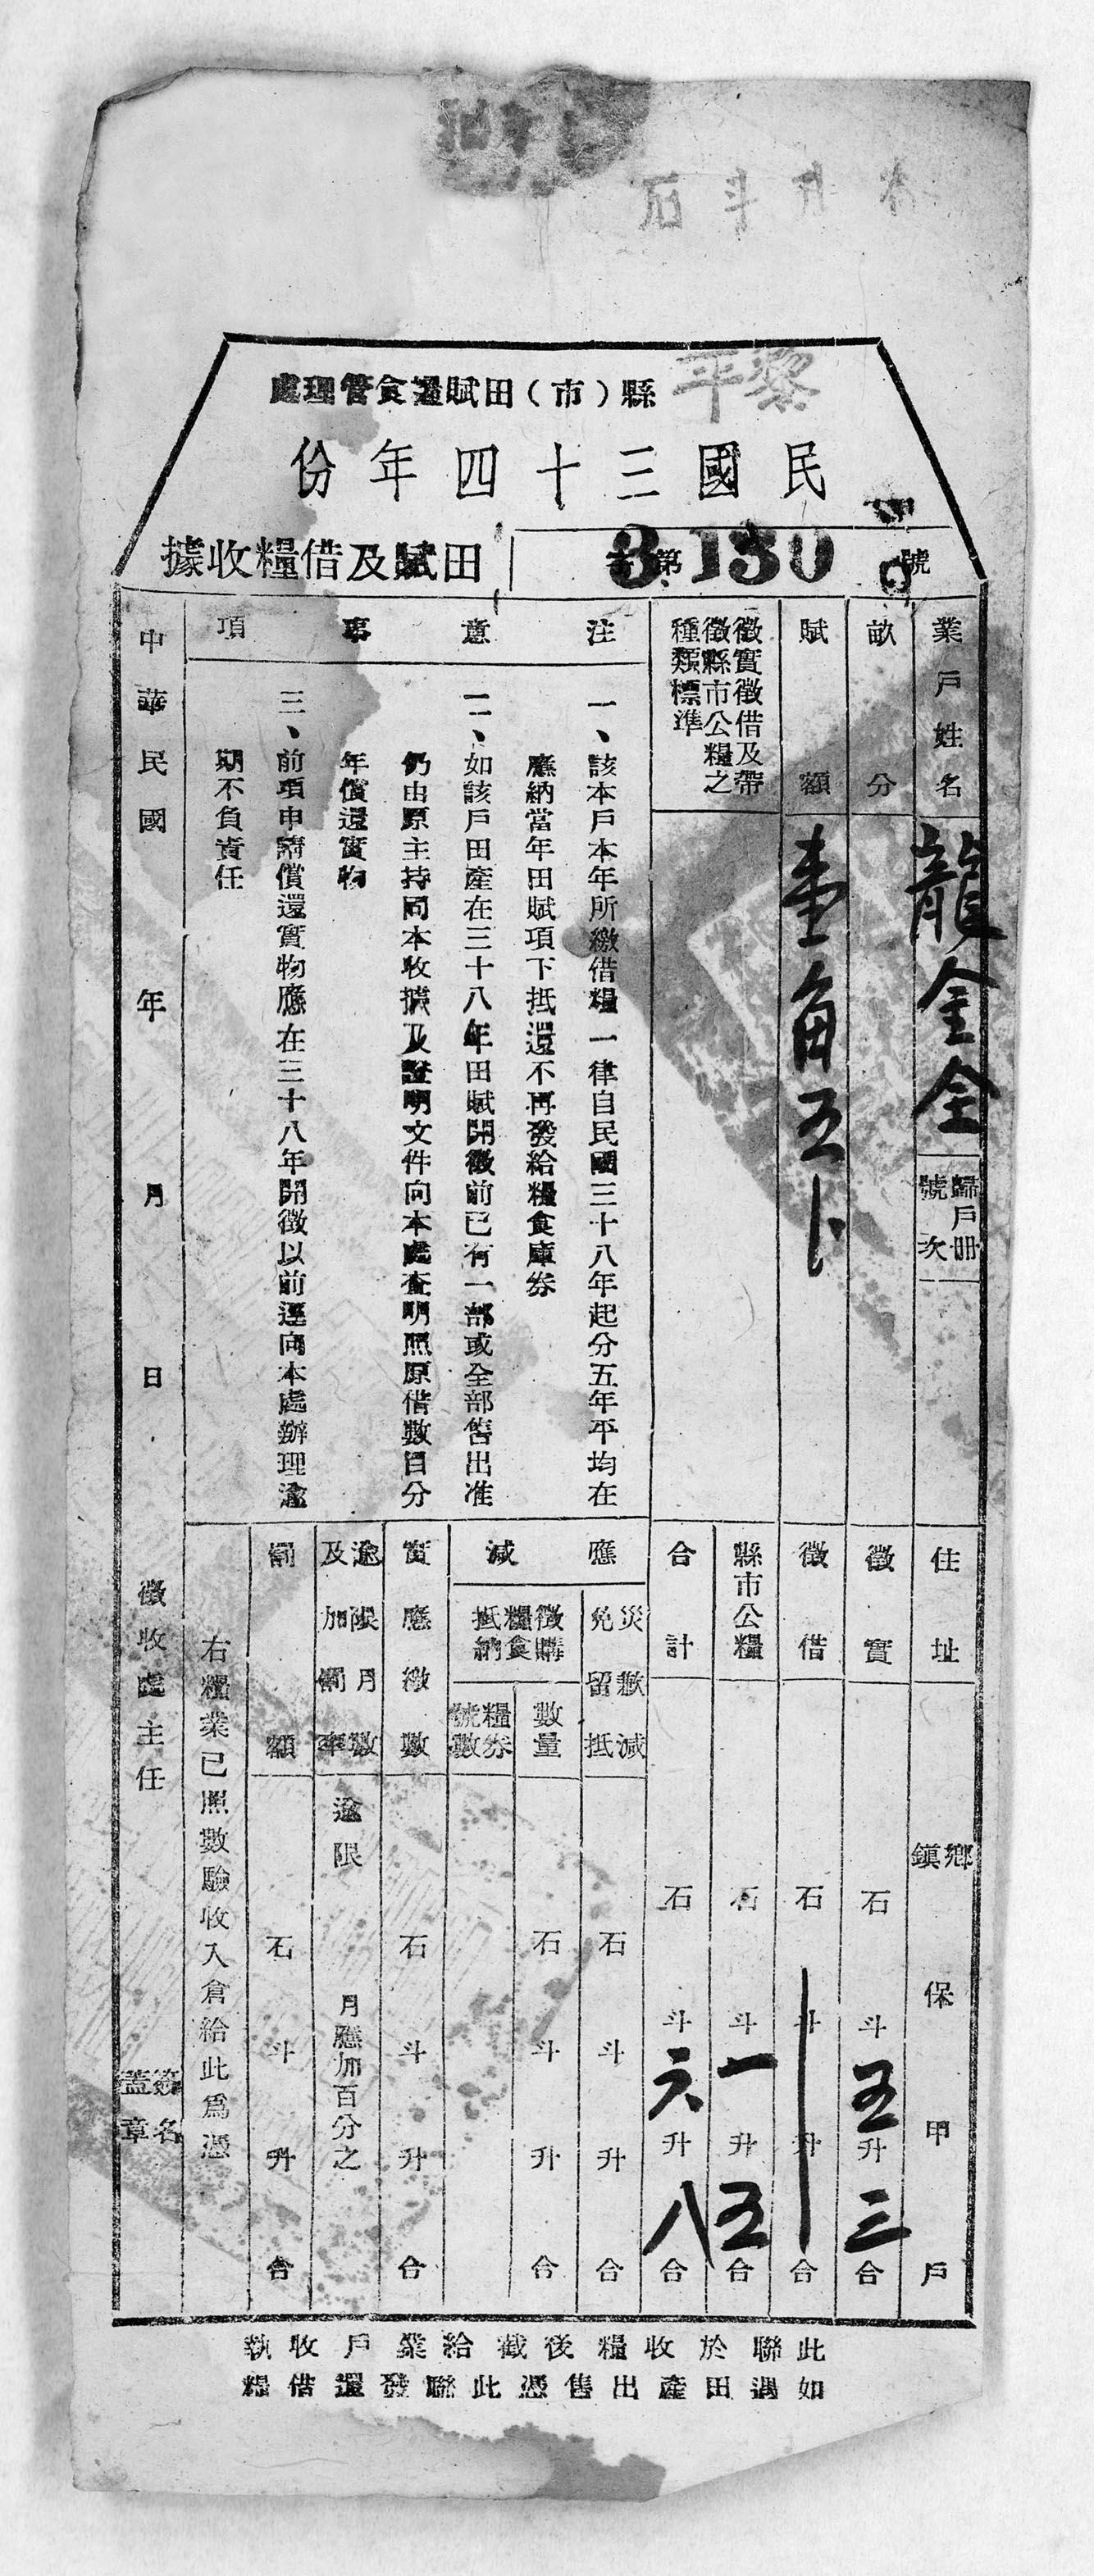 黎平縣（市）田賦糧食管理處
民國三十四年份
田賦及借糧收據
第3130號
業戶姓名
龍金全
歸戶冊號次
住址
鄉鎮
保
甲
戶
畝分
徵實
石
斗
五升
三合
賦額
壹角五卜
徵借
石
斗
升
合
徵實徵借及帶徵縣市公糧之種類標準
縣市公糧
石
斗
一升
五合
合計
石
斗
六升
八合
注意事項
一、該本戶本年所繳借糧一律自民國三十八年起分五年平均在
應納當年田賦項下抵還不再發給糧食庫券
二、如該戶田產在三十八年田賦開徵前已有一部或全部售出准
仍由原主持同本收據及證明文件向本處查明照原借數目分
年償還實物
三、前項申請償還實物應在三十八年開徵以前逕向本處辦理逾
期不負責任
應減
災歉減免留抵
石
斗
升
合
徵購糧食抵納
數量
石
斗
升
合
糧券號數
實應繳數
石
斗
升
合
逾限月數及加罰率
逾限
月應加百分之
罰額
石
斗
升
合
右糧業已照數驗收入倉給此為憑
中華民國
年
月
日
徵收處主任
簽名蓋章
此聯於收糧後截給業戶收執
如遇田產出售憑此聯發還借糧